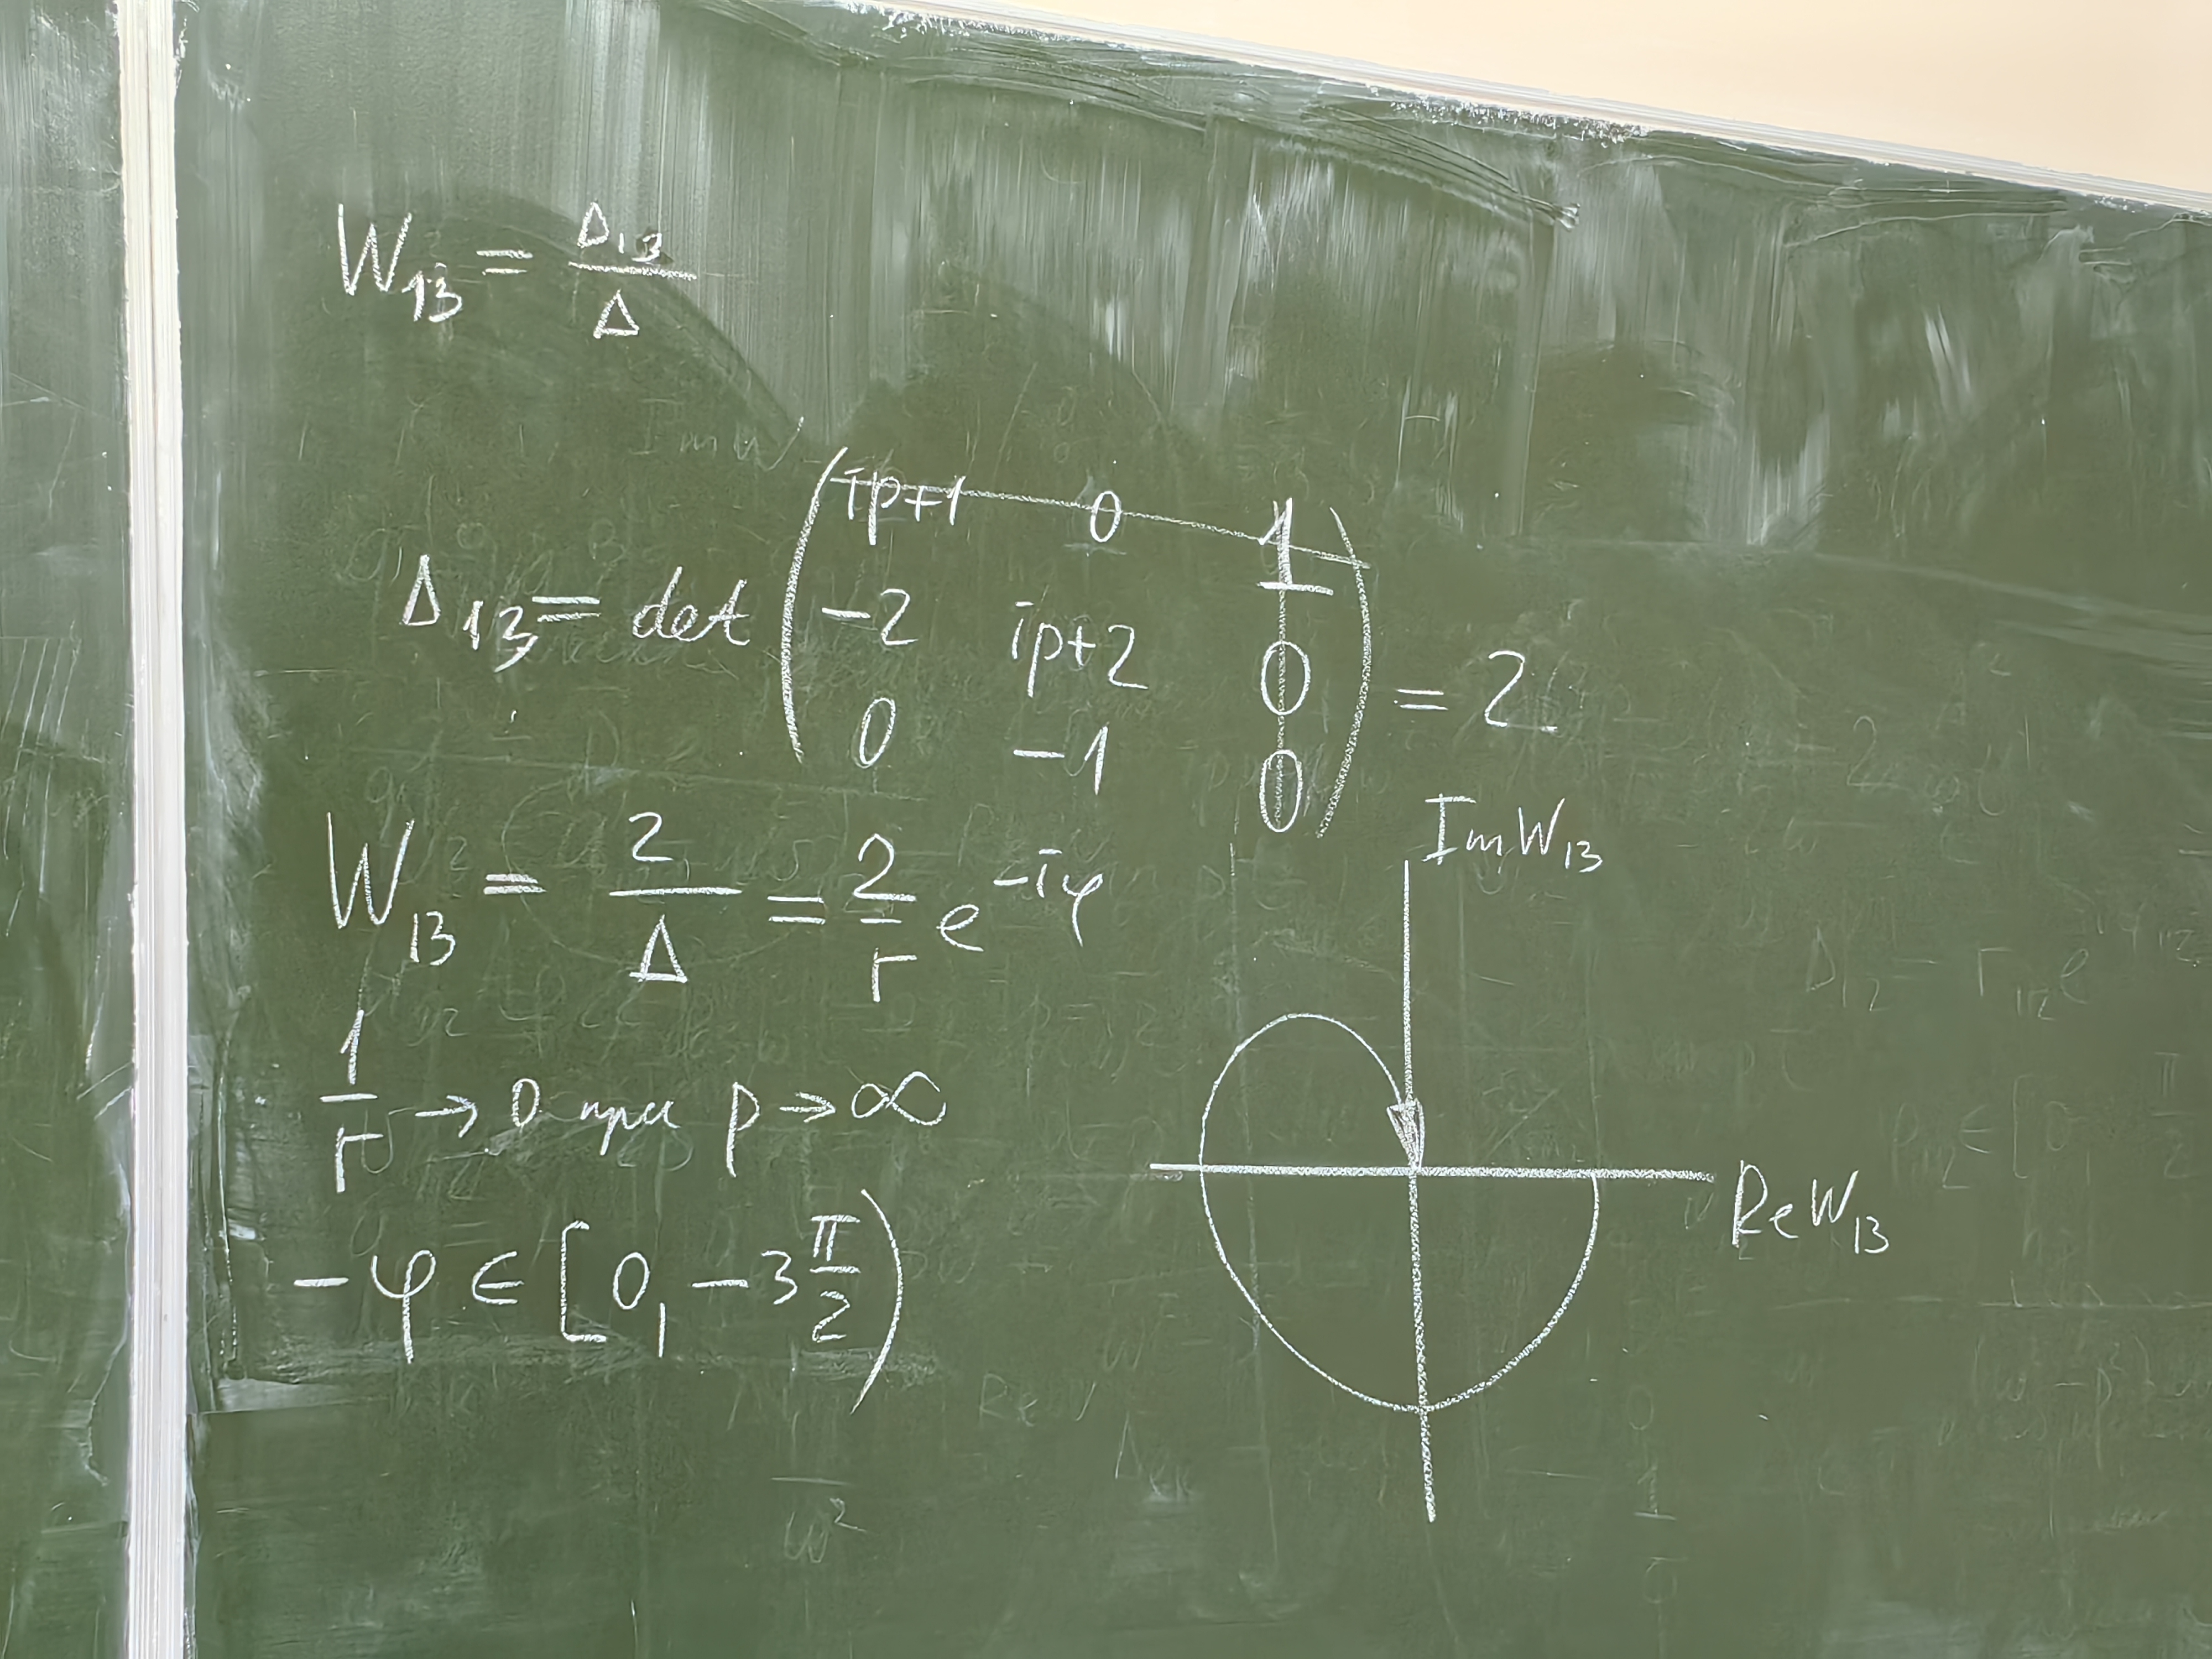 W₁₃ = Δ₁₃ / Δ
Δ₁₃ = det ( ip+1 0 1
-2 ip+2 0
0 -1 0 ) = 2
W₁₃ = 2 / Δ = 2 / r e^(-iφ)
1 / r → 0 при p → ∞
-φ ∈ [0, -3 π/2)
Im W₁₃
Re W₁₃